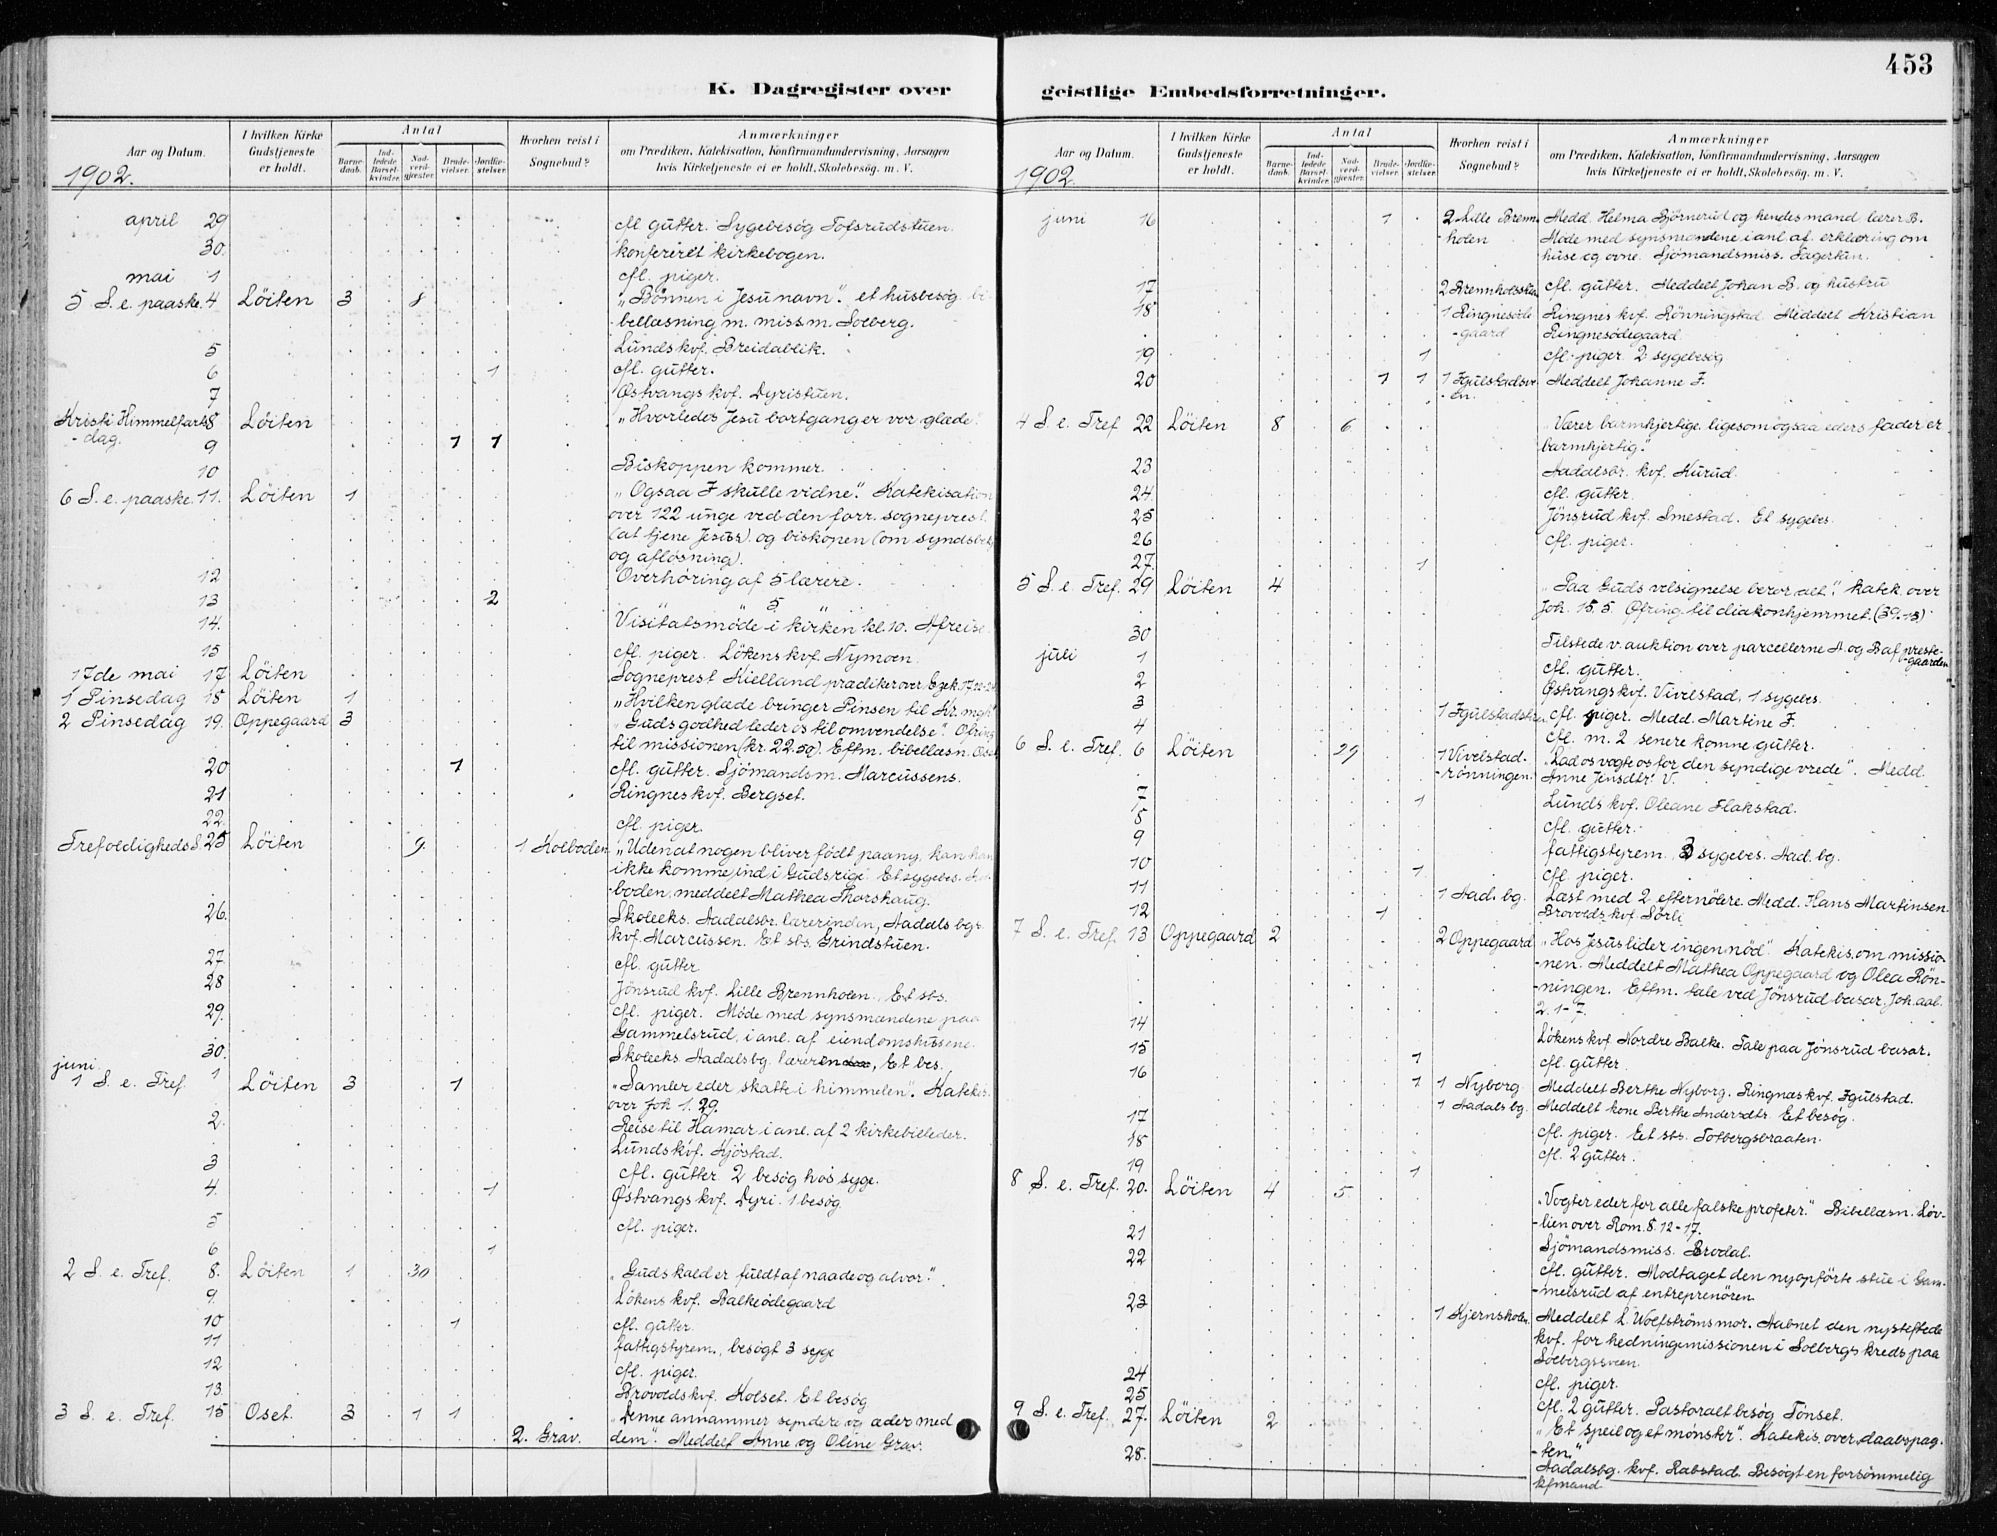 453
K. Dagregister over geistlige Embedsforretninger.
Aar og Datum. I hvilken Kirke Gudstjeneste er holdt. Antal Barnedaab. Indledede Barselkvinder. Nadverdgjæster. Brudevielser. Jordfæstelser. Hvorhen reist i Sognebud? Anmærkninger om Prædiken, Katekisation, Konfirmandundervisning, Aarsagen hvis Kirketjeneste ei er holdt, Skolebesøg. m. V.
1902.
april 29 cfl. gutter. Sygebesøg Tofsrudstuen.
30. konfereret kirkebogen.
mai 1 cfl. piger.
5 S. e. paaske. 4 Löiten 3 8 "Bønnen i Jesu navn". et husbesøg. bi-
bellæsning m. miss.m. Solberg.
5 Lunds kvf. Breidablik.
6 1 cfl. gutter.
7 Østvangs kvf. Dyristuen.
Kristi Himmelfarts- 8 Löiten "Hvorledes Jesu bortgang er vor glæde".
-dag.
9 1 1
10 Biskoppen kommer.
6 S. e. paaske. 11. Löiten 1 "Ogsaa I skulle vidne". Katekisation
over 122 unge ved den forr. sogneprest.
(at tjene Jesus) og biskopen (om syndsbek
og afløsning).
12 Overhøring af 5 lærere.
13 2
14. Visitatsmøde i kirken kl. 10. Afreise.
15 cfl. piger. Lökens kvf. Nymoen.
17de mai 17 Löiten Sogneprest Kielland prædiker over Ezek. 17, 22-24
1 Pinsedag 18 Löiten 1 "Hvilken glæde bringer Pinsen til Kr. mgh"
2 Pinsedag 19. Oppegaard 3 "Guds godhed leder os til omvendelse". Ofring
til missionen (kr. 22.50). Eftm. bibellæsn. Oset
20 1 cfl. gutter. Sjömandsm. Marcussens.
21 Ringnes kvf. Bergset.
22. cfl. piger.
Trefoldigheds S. 25 Löiten 9. 1 Kolboden "Uden at nogen bliver født paany, kan han
ikke komme ind i Guds rige". Et sygebes. Kol-
boden, meddelt Mathea Thorshaug.
26. Skoleeks. Aadalsbr. lærerinden, Aadals bgs.
kvf. Marcussen. Et sbs. Grindstuen.
27. cfl. gutter
28 Jönsrud kvf. Lille Brennholen. Et sbs.
29. cfl. piger. Møde med synsmændene paa
Gammelsrud, i anl. af eiendomshusene.
30. Skoleeks. Aadalsbg. læreren, Et bes.
juni
1 S. e. Tref. 1 Löiten 3 1 "Samler eder skatte i himmelen". Katekis.
over Joh 1. 29.
2. Reise til Hamar i anl. af 2 kirkebilleder.
Lunds kvf. Kjöstad.
3 cfl. gutter 2 besøg hos syge.
4. 1 Østvangs kvf. Dyri. 1 besøg
5 cfl. piger.
6 1
2 S. e. Tref. 8. Löiten 1 30 "Guds kald er fuldt af naade og alvor".
9. Lökens kvf. Balkeödegaard
10 1 cfl. gutter.
11 fattigstyrem., besögt 3 syge
12 cfl. piger.
13. Brovolds kvf. Kolset. Et besög
3 S. e. Tref. 15 Oset. 3 1 1 "Denne annammer syndere og æder med
2. Grav. dem". Meddelt Anne og Oline Grav.
Aar og Datum. I hvilken Kirke Gudstjeneste er holdt. Antal Barnedaab. Indledede Barselkvinder. Nadverdgjæster. Brudevielser. Jordfæstelser. Hvorhen reist i Sognebud? Anmærkninger om Prædiken, Katekisation, Konfirmandundervisning, Aarsagen hvis Kirketjeneste ei er holdt, Skolebesøg. m. V.
1902.
juni 16 1 2 Lille Brenn- Medd. Helma Björnerud og hendes mand lærer B.
-holen Møde med synsmændene i anl. af erklæring om
huse og ovne. Sjömandsmiss. Fagerlien.
17 2 Brennholsstuen cfl. gutter. Meddelt Johan B. og hustru
18 1 Ringnesøde- Ringnes kvf. Rönningstad. Meddelt Kristian
-gaard Ringnesödegaard.
19 1 cfl. piger 2 sygebesøg
20 1 1 1 Fgulstadsve- Meddelt Johanne F.
-en.
4 S. e. Tref 22 Löiten 8 6 "Værer barmhjertige, ligesom ogsaa eders fader er
barmhjertig."
23 Aadalsbr. kvf. Kurud.
24. cfl. gutter.
25 Jönsrud kvf. Smestad. Et sygebes.
26 cfl. piger.
27. 1
5 S. e. Tref. 29 Löiten 4 "Paa Guds velsignelse beror alt". katek. over
Joh. 15, 5 Ofring til diakonhjemmet. (39.13)
30 Tilstede v. auktion over parcellerne A. og B af preste-
-gaarden
juli 1 cfl. gutter.
2 Østvangs kvf. Vivelstad, 1 sygebes.
3 1 Fgulstadstuen cfl. piger. Medd. Martine F.
4 cfl. m. 2 senere komne gutter.
6 S. e. Tref. 6 Löiten 29 1 Vivelstad- "Lad os vogte os for den syndige vrede". Medd.
-rönningen. Anne Jensdtr. V.
7 1 Lunds kvf. Oleane Flakstad.
8 cfl. gutter.
9 fattigstyrem. 3 sygebes. Aad. bg.
10 1 cfl. piger.
11 1 Aad. bg. Læst med 2 efternølere. Medd. Hans Martinsen.
12 1 Brovolds kvf. Sörli
7 S. e. Tref. 13 Oppegaard 2 2 Oppegaard "Hos Jesus lider ingen nöd". Katekis. om missio-
-nen. Meddelt Mathea Oppegaard og Olea Rön-
-ningen. Eftm. tale ved Jönsrud basar. Joh. aab.
2. 1-7.
14 Lökens kvf. Nordre Balke. Tale paa Jönsrud basar.
15 1 cfl. gutter.
16 1 1 Nyborg Meddelt Berthe Nyborg. Ringnæs kvf. Fgulstad.
1 Aadalsbg. Meddelt kone Berthe Andersdtr. Et besøg.
17 cfl. piger. Eet sbs. Tofbergsbraaten.
18 cfl. 2 gutter.
19 1
8 S. e. Tref. 20. Löiten 4 5 "Vogter eder for alle falske profeter." Bibellæsn. Løv-
-lien over Rom. 8. 12-17.
21 Sjömandsmiss. Brodal.
22 cfl. gutter. Modtaget den nyopförte stue i Gam-
-melsrud af entreprenören
23 1 Kjernsholen. Meddelt L. Wolfströms mor. Aabnet den nystiftede
kvf. for hedningemissionen i Solbergs kreds paa
Solbergsveen.
24 cfl. piger.
25 cfl. 2 gutter. Pastoralt besøg Tønset.
9 S. e. Tref. 27. Löiten 2 "Et speil og et mønster". Katekis. over daabspag-
-ten."
28. Aadalsbg. kvf. Rabstad. Besøgt en forsömmelig
kfmand